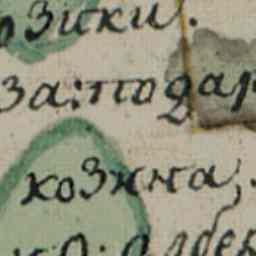 озики.
за:подар
козина,.
ко. албек